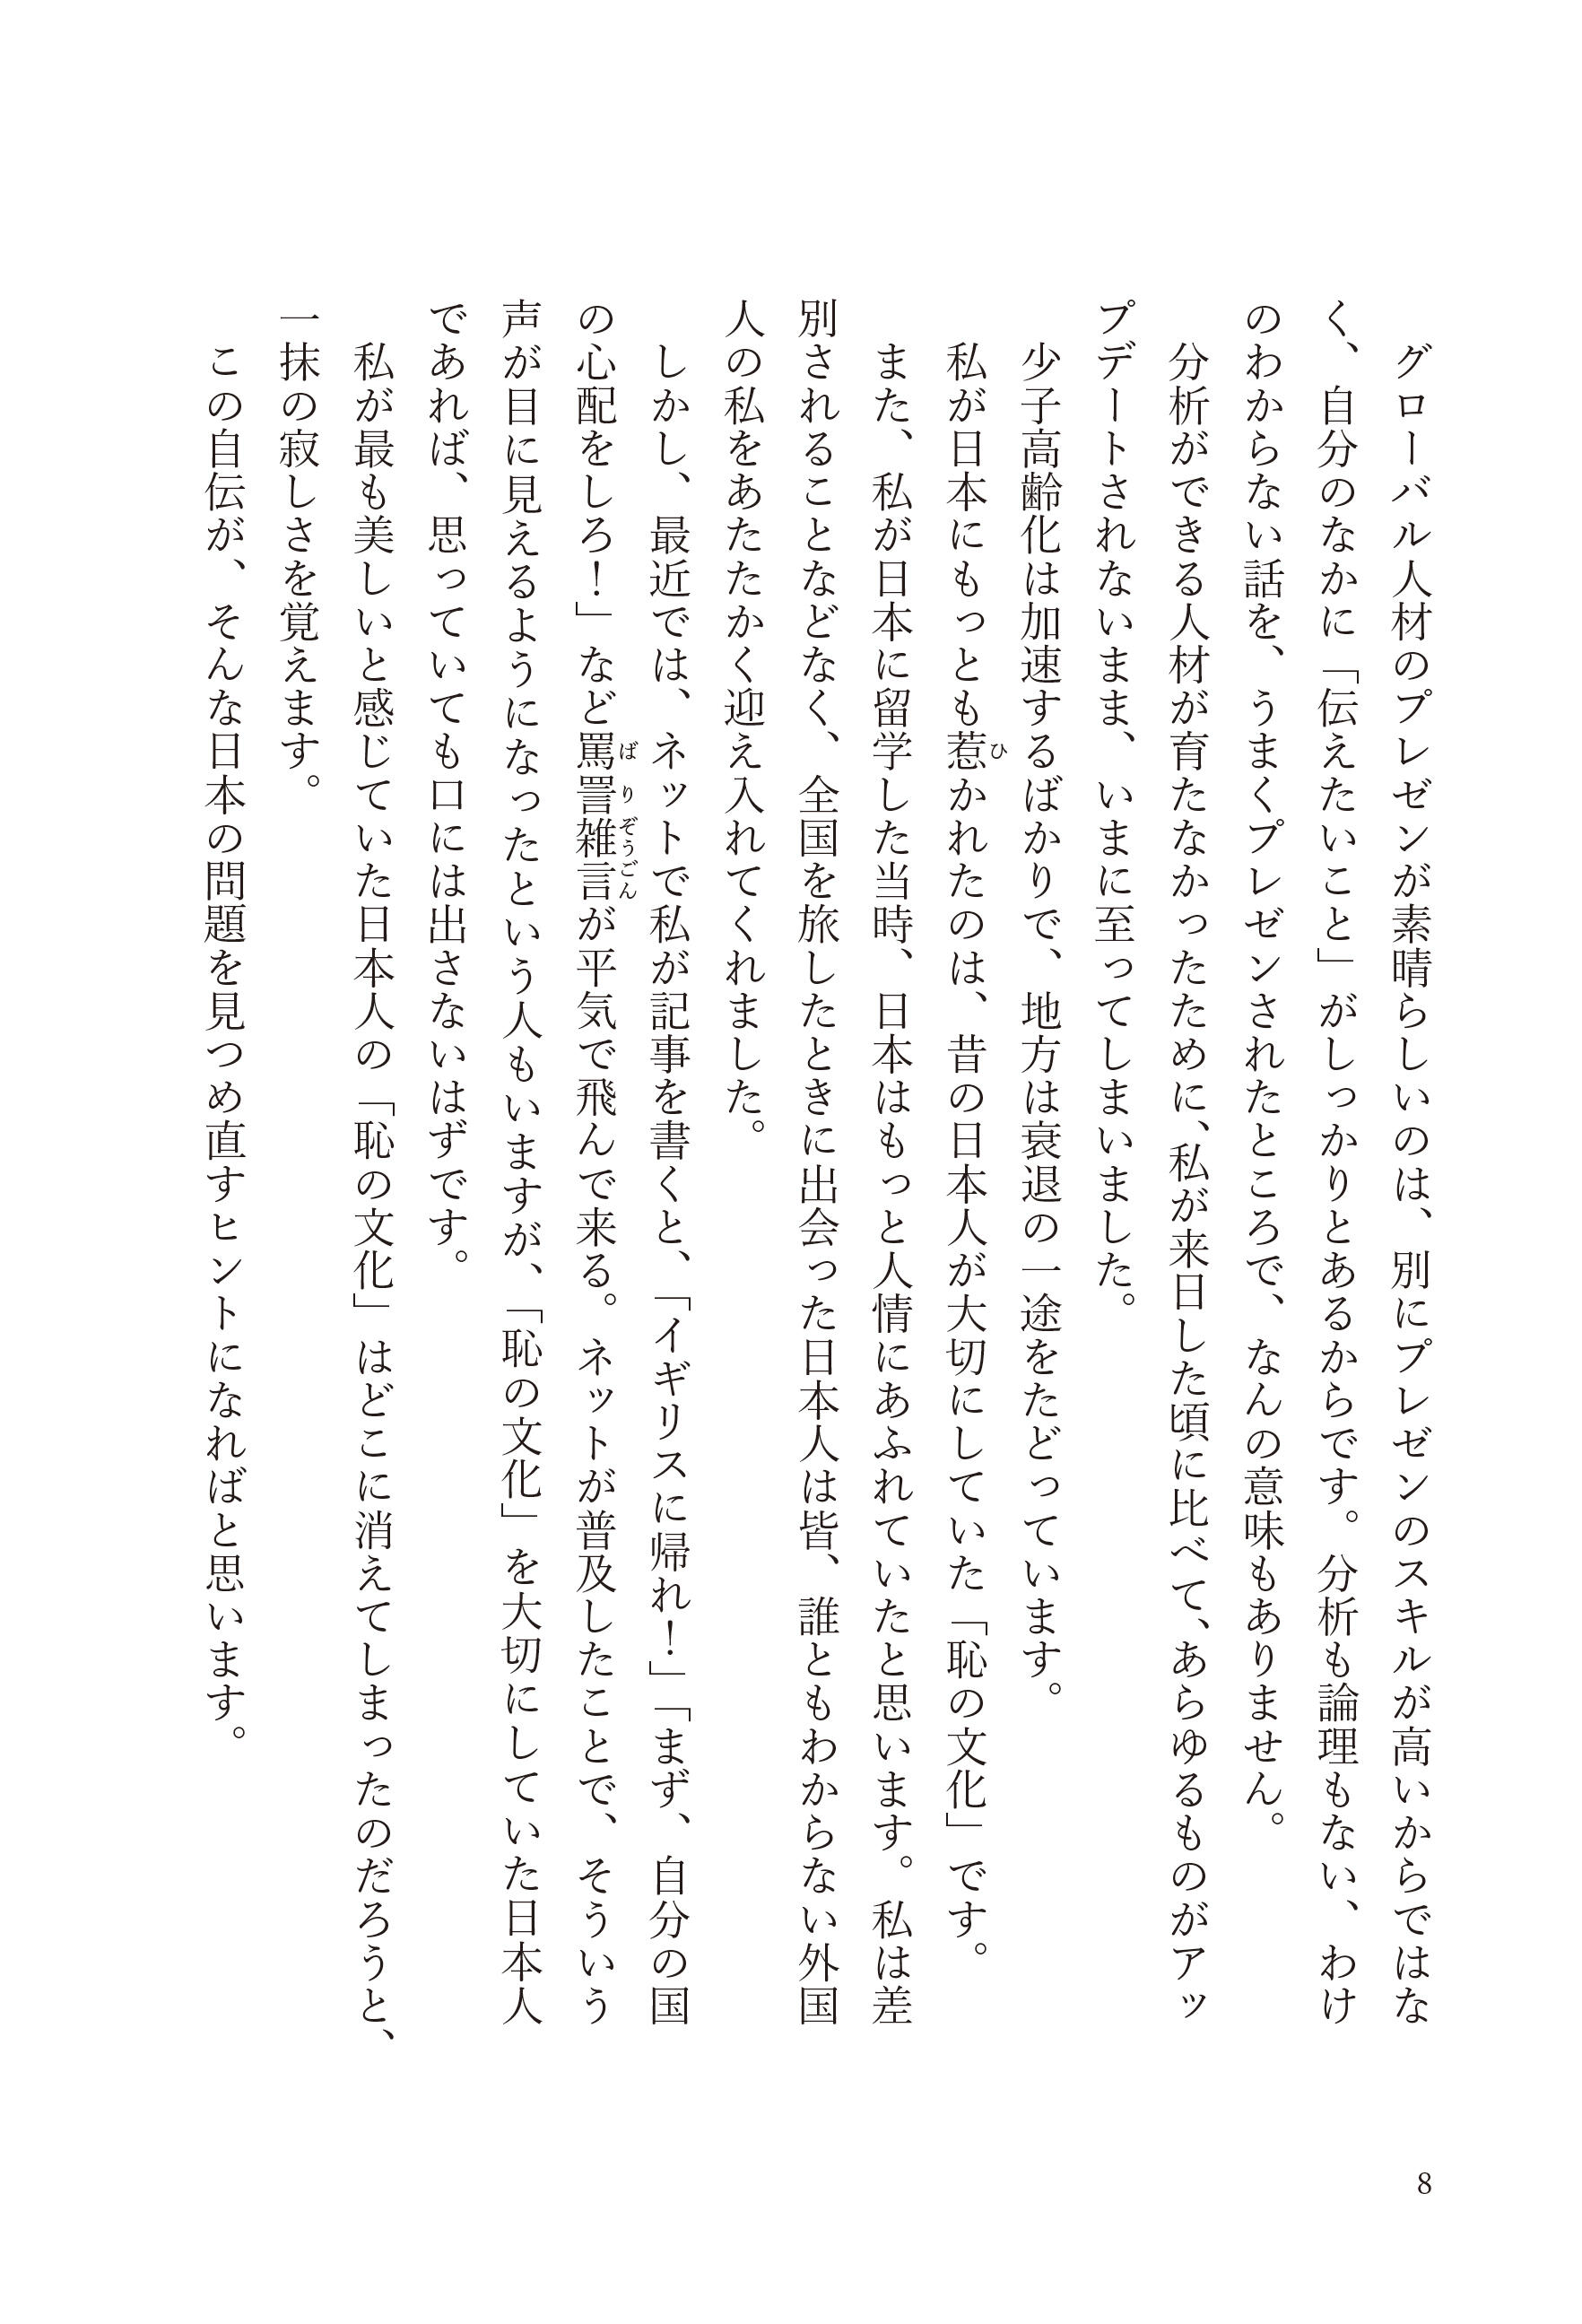 グローバル人材のプレゼンが素晴らしいのは、別にプレゼンのスキルが高いからではな
く、自分のなかに「伝えたいこと」がしっかりとあるからです。分析も論理もない、わけ
のわからない話を、うまくプレゼンされたところで、なんの意味もありません。
分析ができる人材が育たなかったために、私が来日した頃に比べて、あらゆるものがアッ
プデートされないまま、いまに至ってしまいました。
少子高齢化は加速するばかりで、地方は衰退の一途をたどっています。
私が日本にもっとも惹かれたのは、昔の日本人が大切にしていた「恥の文化」です。
また、私が日本に留学した当時、日本はもっと人情にあふれていたと思います。私は差
別されることなどなく、全国を旅したときに出会った日本人は皆、誰ともわからない外国
人の私をあたたかく迎え入れてくれました。
しかし、最近では、ネットで私が記事を書くと、「イギリスに帰れ!」「まず、自分の国
の心配をしろ!」など罵詈雑言が平気で飛んで来る。ネットが普及したことで、そういう
声が目に見えるようになったという人もいますが、「恥の文化」を大切にしていた日本人
であれば、思っていても口には出さないはずです。
私が最も美しいと感じていた日本人の「恥の文化」はどこに消えてしまったのだろうと、
一抹の寂しさを覚えます。
この自伝が、そんな日本の問題を見つめ直すヒントになればと思います。
8